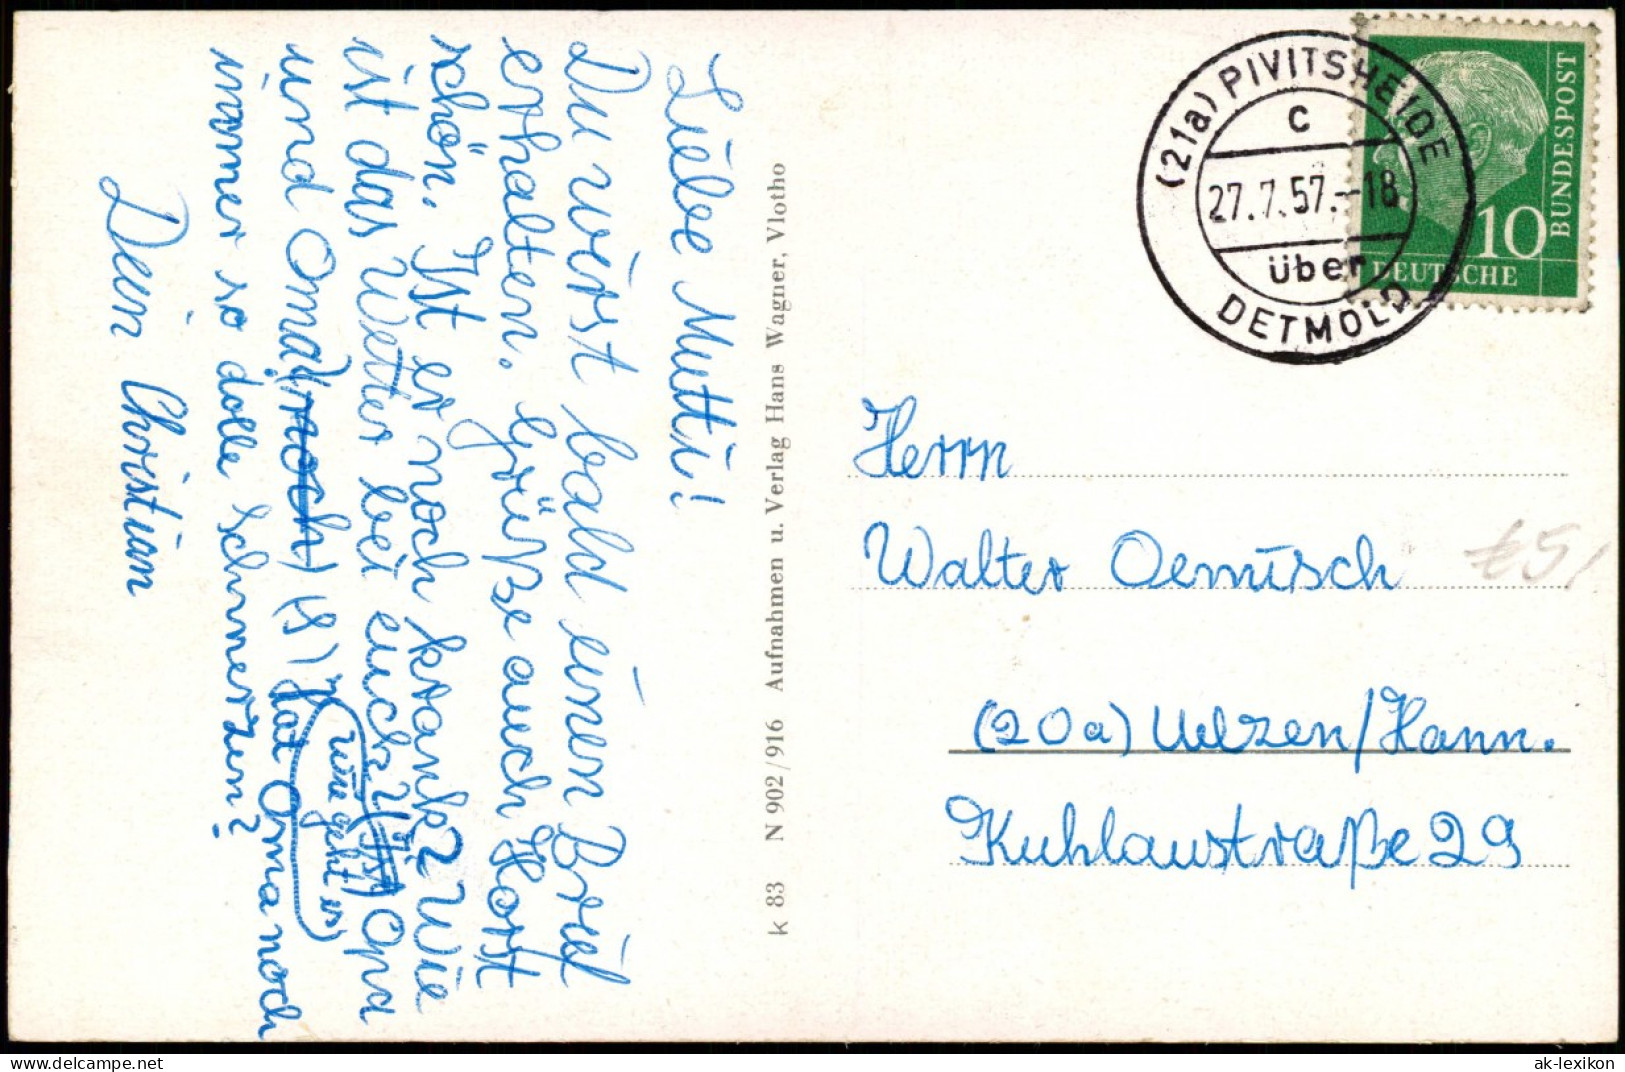 Liebe Mutti!
Du wirst bald einen Brief
erhalten. Grüße auch Horst
schön. Ist er noch krank? Wie
ist das Wetter bei euch? Opa
(wie geht es)
und Oma? Hat Oma noch
immer so dolle Schmerzen?
Dein Christian
k 83 N 902/916 Aufnahmen u. Verlag Hans Wagner, Vlotho
(21a) PIVITSHEIDE
C
27.7.57.-18
über
DETMOLD
DEUTSCHE
BUNDESPOST
10
Herrn
Walter Oemisch
(20a) Uelzen/Hann.
Kuhlaustraße 29
ak-ansichtskarten.de
ak-lexikon